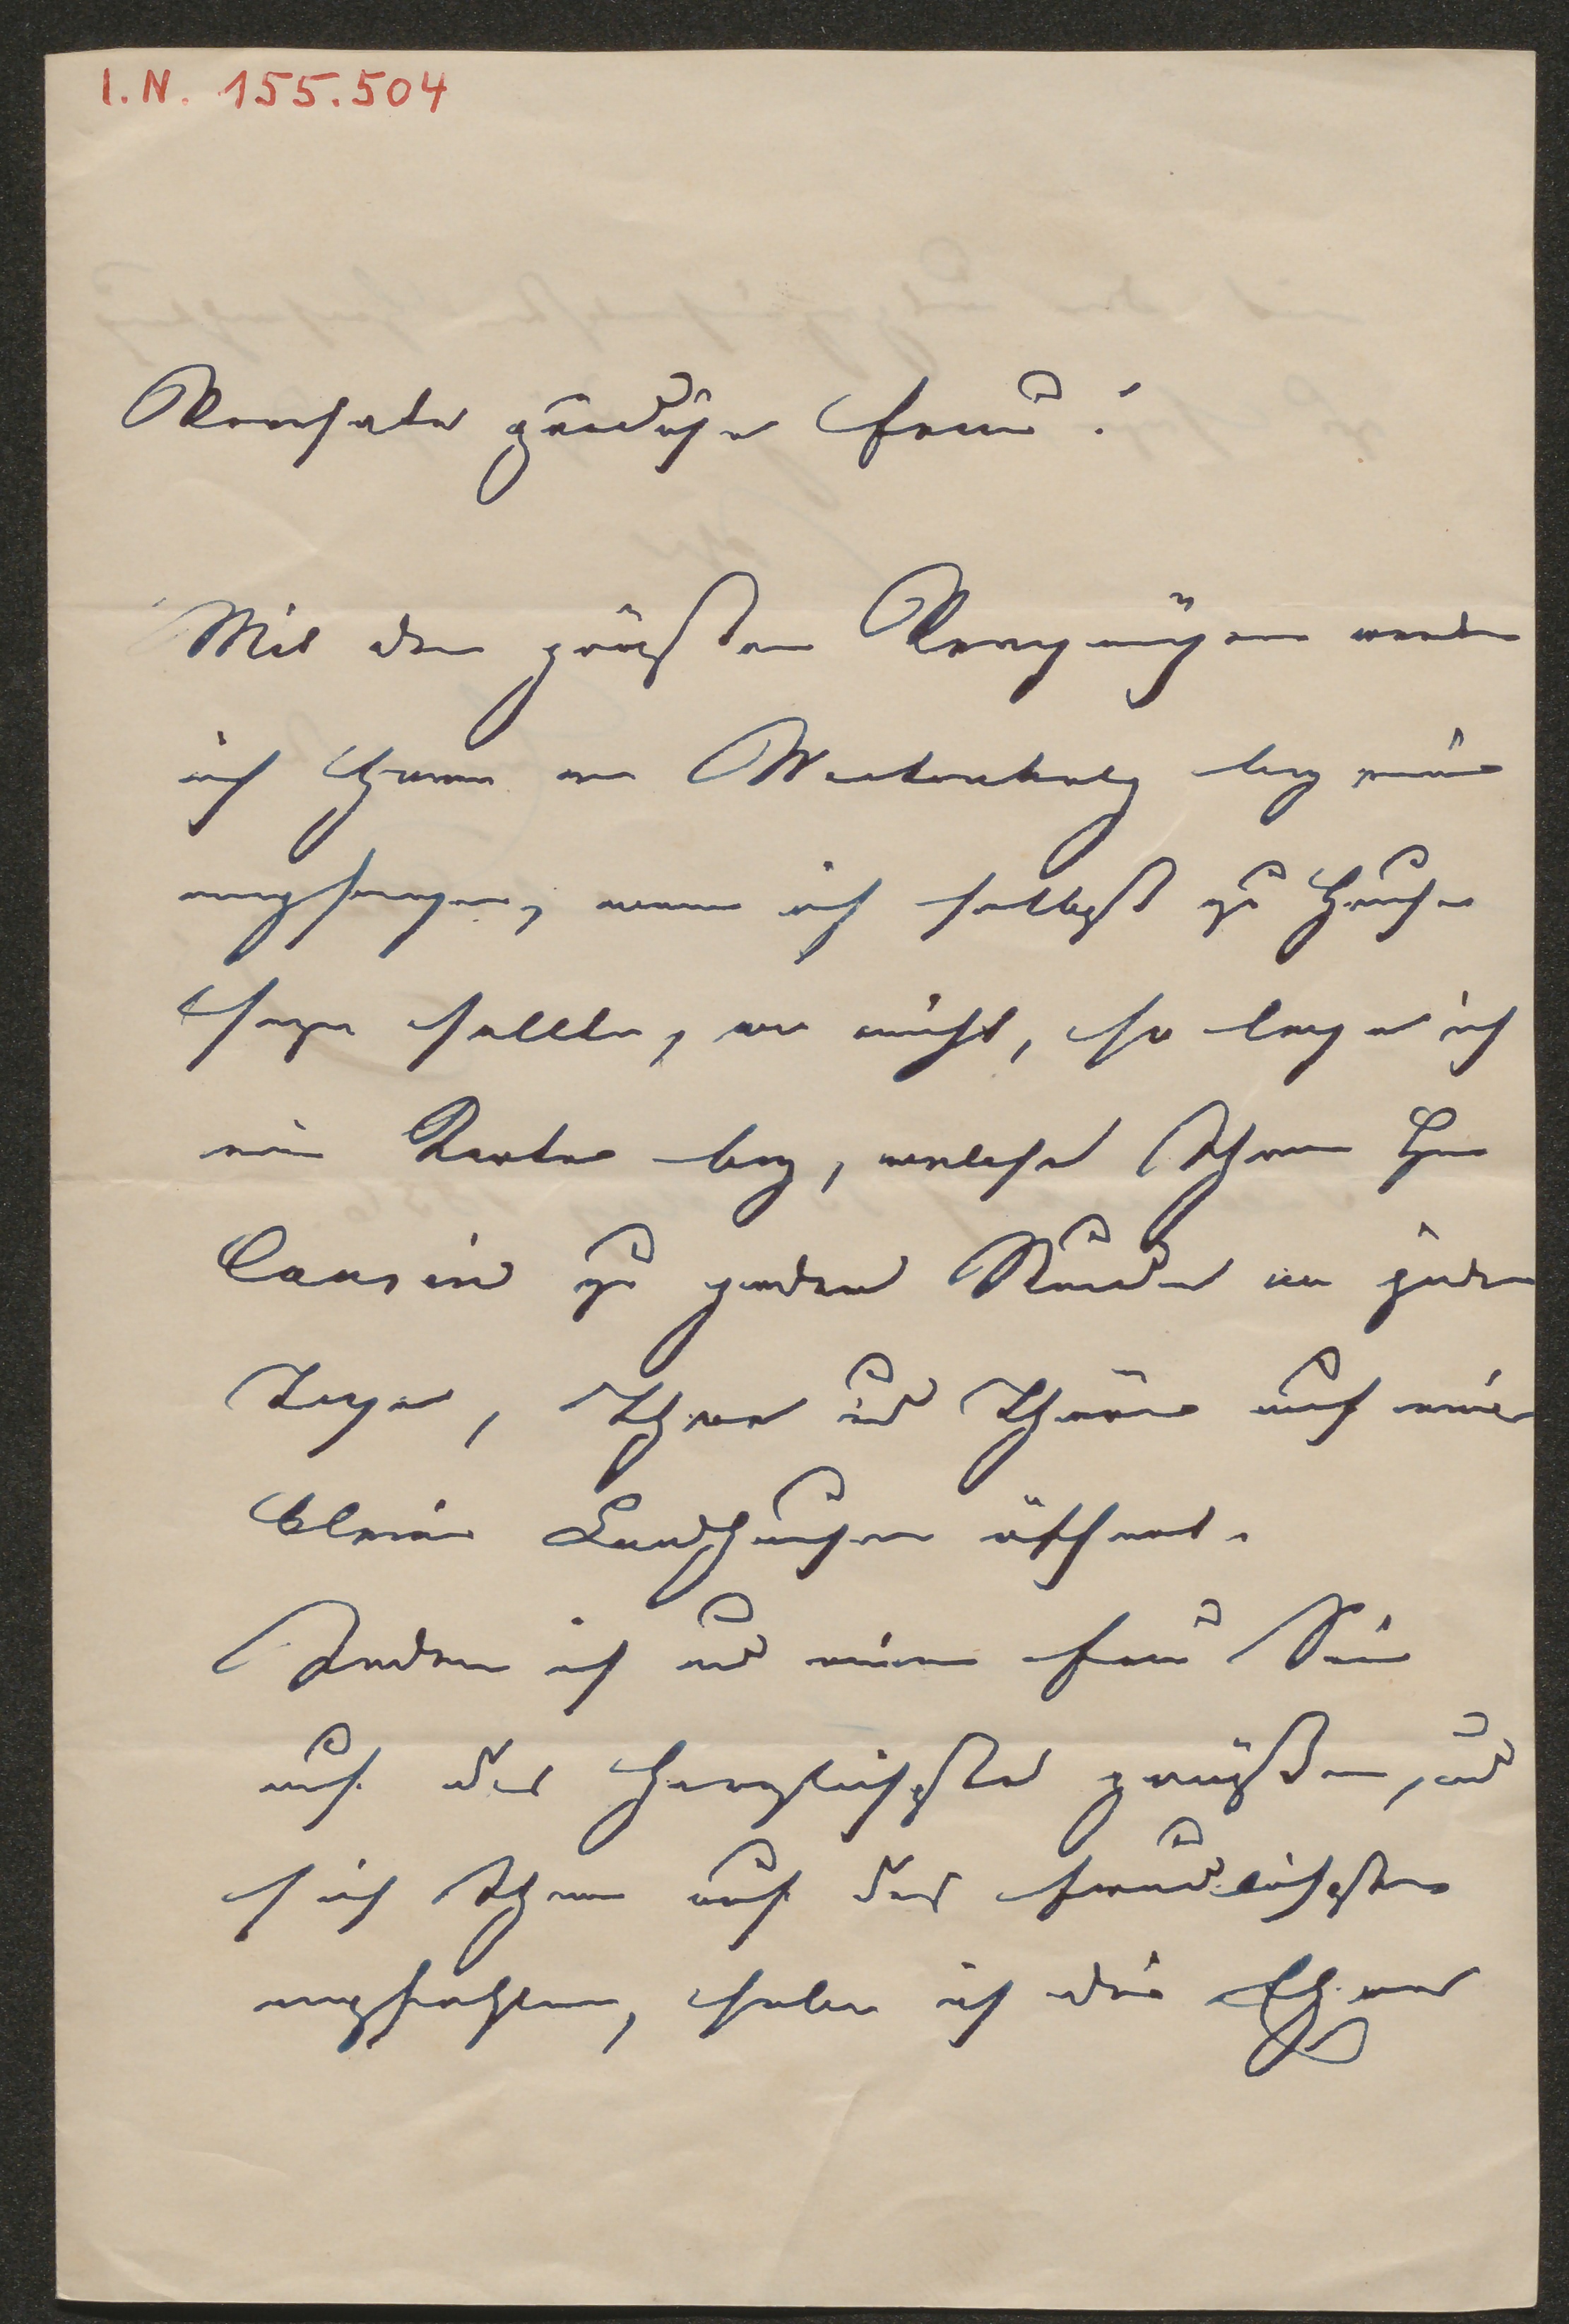 I.N. 155.504
Verehrte gnädige Frau!
Mit dem größten Vergnügen werde
ich Herrn von Wartenburg bey mir
empfangen, wenn ich selbst zu Hause
seyn sollte, wo nicht, so lege ich
eine Karte bey, welche Ihrem Hrn
Cousin zu jeder Stunde an jedem
Tage, Thor und Thüre auf meinem
kleinen Landhause öffnet.
Indem ich und meine Frau Sie
auf das herzlichste grüßen, und
sich Ihnen auf das freundlichste
empfehlen, habe ich die Ehre